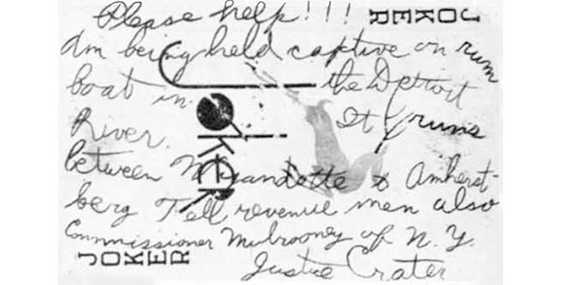 Please help!!!
JOKER
Am being held captive on rum
boat in the Detroit
River. It runs
JOKER
between Wyandotte & Amherst-
berg Tell revenue men also
Commissioner Mulrooney of N.Y.
JOKER
Justice Crater